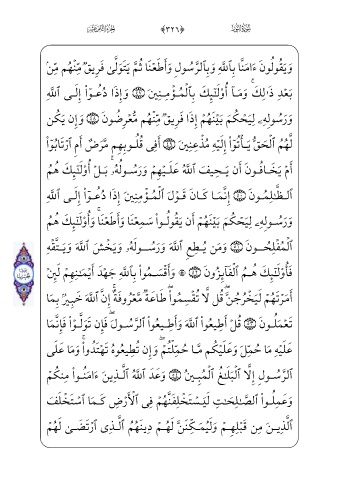 وَيَقُولُونَ ءَامَنَّا بِٱللَّهِ وَبِٱلرَّسُولِ وَأَطَعْنَا ثُمَّ يَتَوَلَّىٰ فَرِيقٌ مِّنْهُم مِّنۢ
بَعْدِ ذَٰلِكَ وَمَآ أُوْلَٰٓئِكَ بِٱلْمُؤْمِنِينَ وَإِذَا دُعُوٓاْ إِلَى ٱللَّهِ
وَرَسُولِهِۦ لِيَحْكُمَ بَيْنَهُمْ إِذَا فَرِيقٌ مِّنْهُم مُّعْرِضُونَ وَإِن يَكُن
لَّهُمُ ٱلْحَقُّ يَأْتُوٓاْ إِلَيْهِ مُذْعِنِينَ أَفِى قُلُوبِهِم مَّرَضٌ أَمِ ٱرْتَابُوٓاْ
أَمْ يَخَافُونَ أَن يَحِيفَ ٱللَّهُ عَلَيْهِمْ وَرَسُولُهُۥ ۚ بَلْ أُوْلَٰٓئِكَ هُمُ
ٱلظَّٰلِمُونَ إِنَّمَا كَانَ قَوْلَ ٱلْمُؤْمِنِينَ إِذَا دُعُوٓاْ إِلَى ٱللَّهِ
وَرَسُولِهِۦ لِيَحْكُمَ بَيْنَهُمْ أَن يَقُولُواْ سَمِعْنَا وَأَطَعْنَا ۚ وَأُوْلَٰٓئِكَ هُمُ
ٱلْمُفْلِحُونَ وَمَن يُطِعِ ٱللَّهَ وَرَسُولَهُۥ وَيَخْشَ ٱللَّهَ وَيَتَّقْهِ
فَأُوْلَٰٓئِكَ هُمُ ٱلْفَآئِزُونَ ۞ وَأَقْسَمُواْ بِٱللَّهِ جَهْدَ أَيْمَٰنِهِمْ لَئِنْ
أَمَرْتَهُمْ لَيَخْرُجُنَّ ۖ قُل لَّا تُقْسِمُواْ ۖ طَاعَةٌ مَّعْرُوفَةٌ ۚ إِنَّ ٱللَّهَ خَبِيرٌۢ بِمَا
تَعْمَلُونَ قُلْ أَطِيعُواْ ٱللَّهَ وَأَطِيعُواْ ٱلرَّسُولَ ۖ فَإِن تَوَلَّوْاْ فَإِنَّمَا
عَلَيْهِ مَا حُمِّلَ وَعَلَيْكُم مَّا حُمِّلْتُمْ ۖ وَإِن تُطِيعُوهُ تَهْتَدُواْ ۚ وَمَا عَلَى
ٱلرَّسُولِ إِلَّا ٱلْبَلَٰغُ ٱلْمُبِينُ وَعَدَ ٱللَّهُ ٱلَّذِينَ ءَامَنُواْ مِنكُمْ
وَعَمِلُواْ ٱلصَّٰلِحَٰتِ لَيَسْتَخْلِفَنَّهُمْ فِى ٱلْأَرْضِ كَمَا ٱسْتَخْلَفَ
ٱلَّذِينَ مِن قَبْلِهِمْ وَلَيُمَكِّنَنَّ لَهُمْ دِينَهُمُ ٱلَّذِى ٱرْتَضَىٰ لَهُمْ